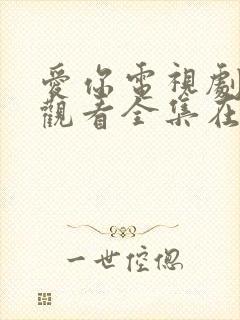 愛你電視劇
觀看全集在
一世倥傯